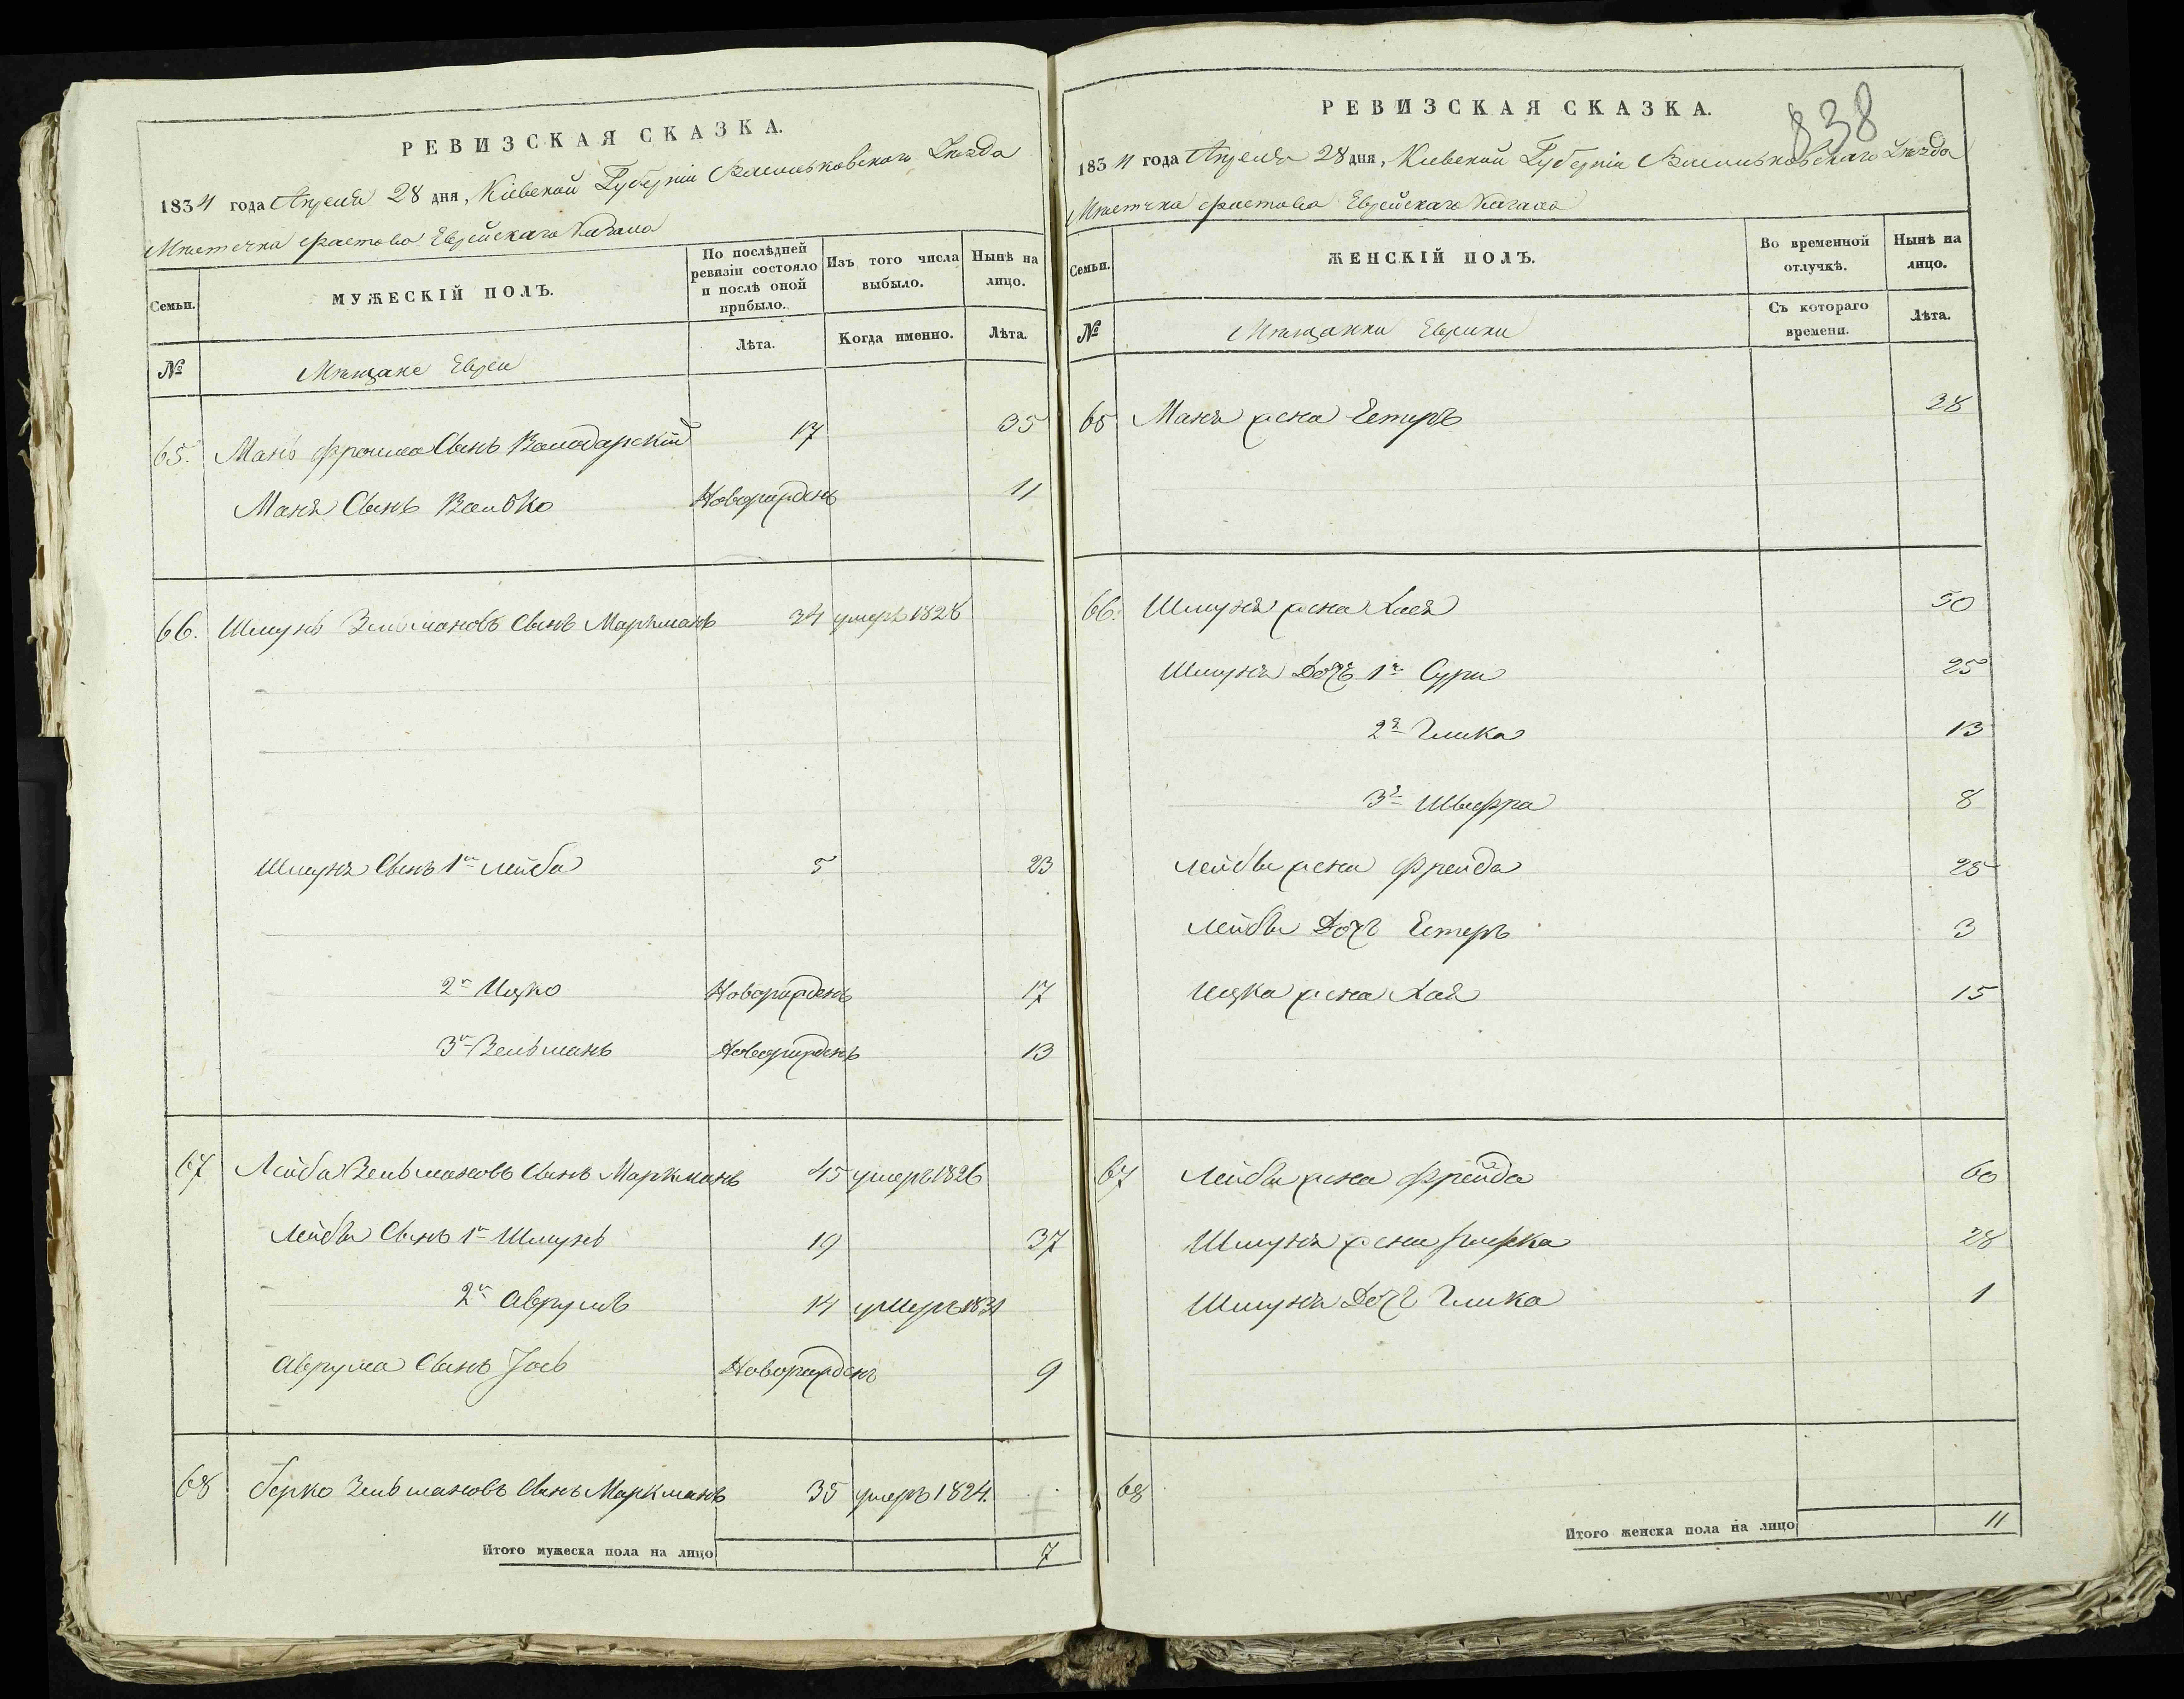 РЕВИЗСКАЯ СКАЗКА.
1834 года Апреля 28 дня, Кіевской Губерніи Васильковскаго Уѣзда
Мѣстечка Фастова Еврейскаго Кагала
Семьи. МУЖЕСКІЙ ПОЛЪ. По послѣдней ревизіи состояло и послѣ оной прибыло. Изъ того числа выбыло. Нынѣ на лицо.
№ Мѣщане Евреи Лѣта. Когда именно. Лѣта.
65. Мань Фроима Сынъ Володарскій 17 35
Маня Сынъ Волько Новорожденъ 11
66. Шмунь Зельмановъ Сынъ Маркманъ 34 умеръ 1828
Шмуня Сынъ 1й Лейба 5 23
2й Ицко Новорожденъ 17
3й Зельманъ Новорожденъ 13
67 Лейба Зельмановъ Сынъ Маркманъ 45 умеръ 1826
Лейбы Сынъ 1й Шмунь 19 37
2й Аврумъ 14 умеръ 1831
Аврума Сынъ Іось Новорожденъ 9
68 Берко Зельмановъ Сынъ Маркманъ 35 умеръ 1824.
Итого мужеска пола на лицо 7
838
РЕВИЗСКАЯ СКАЗКА.
1834 года Апреля 28 дня, Кіевской Губерніи Васильковскаго Уѣзда
Мѣстечка Фастова Еврейскаго Кагала
Семьи. ЖЕНСКІЙ ПОЛЪ. Во временной отлучкѣ. Нынѣ на лицо.
№ Мѣщанки Еврейки Съ котораго времени. Лѣта.
65 Маня жена Естеръ 28
66. Шмуня жена Хая 50
Шмуня Дочь 1я Сура 25
2я Глика 13
3я Шифра 8
Лейбы жена Фрейда 25
Лейбы Дочь Естеръ 3
Ицка жена Хая 15
67 Лейбы жена Фрейда 60
Шмуня жена 28
Шмуня Дочь Глика 1
68
Итого женска пола на лицо 11